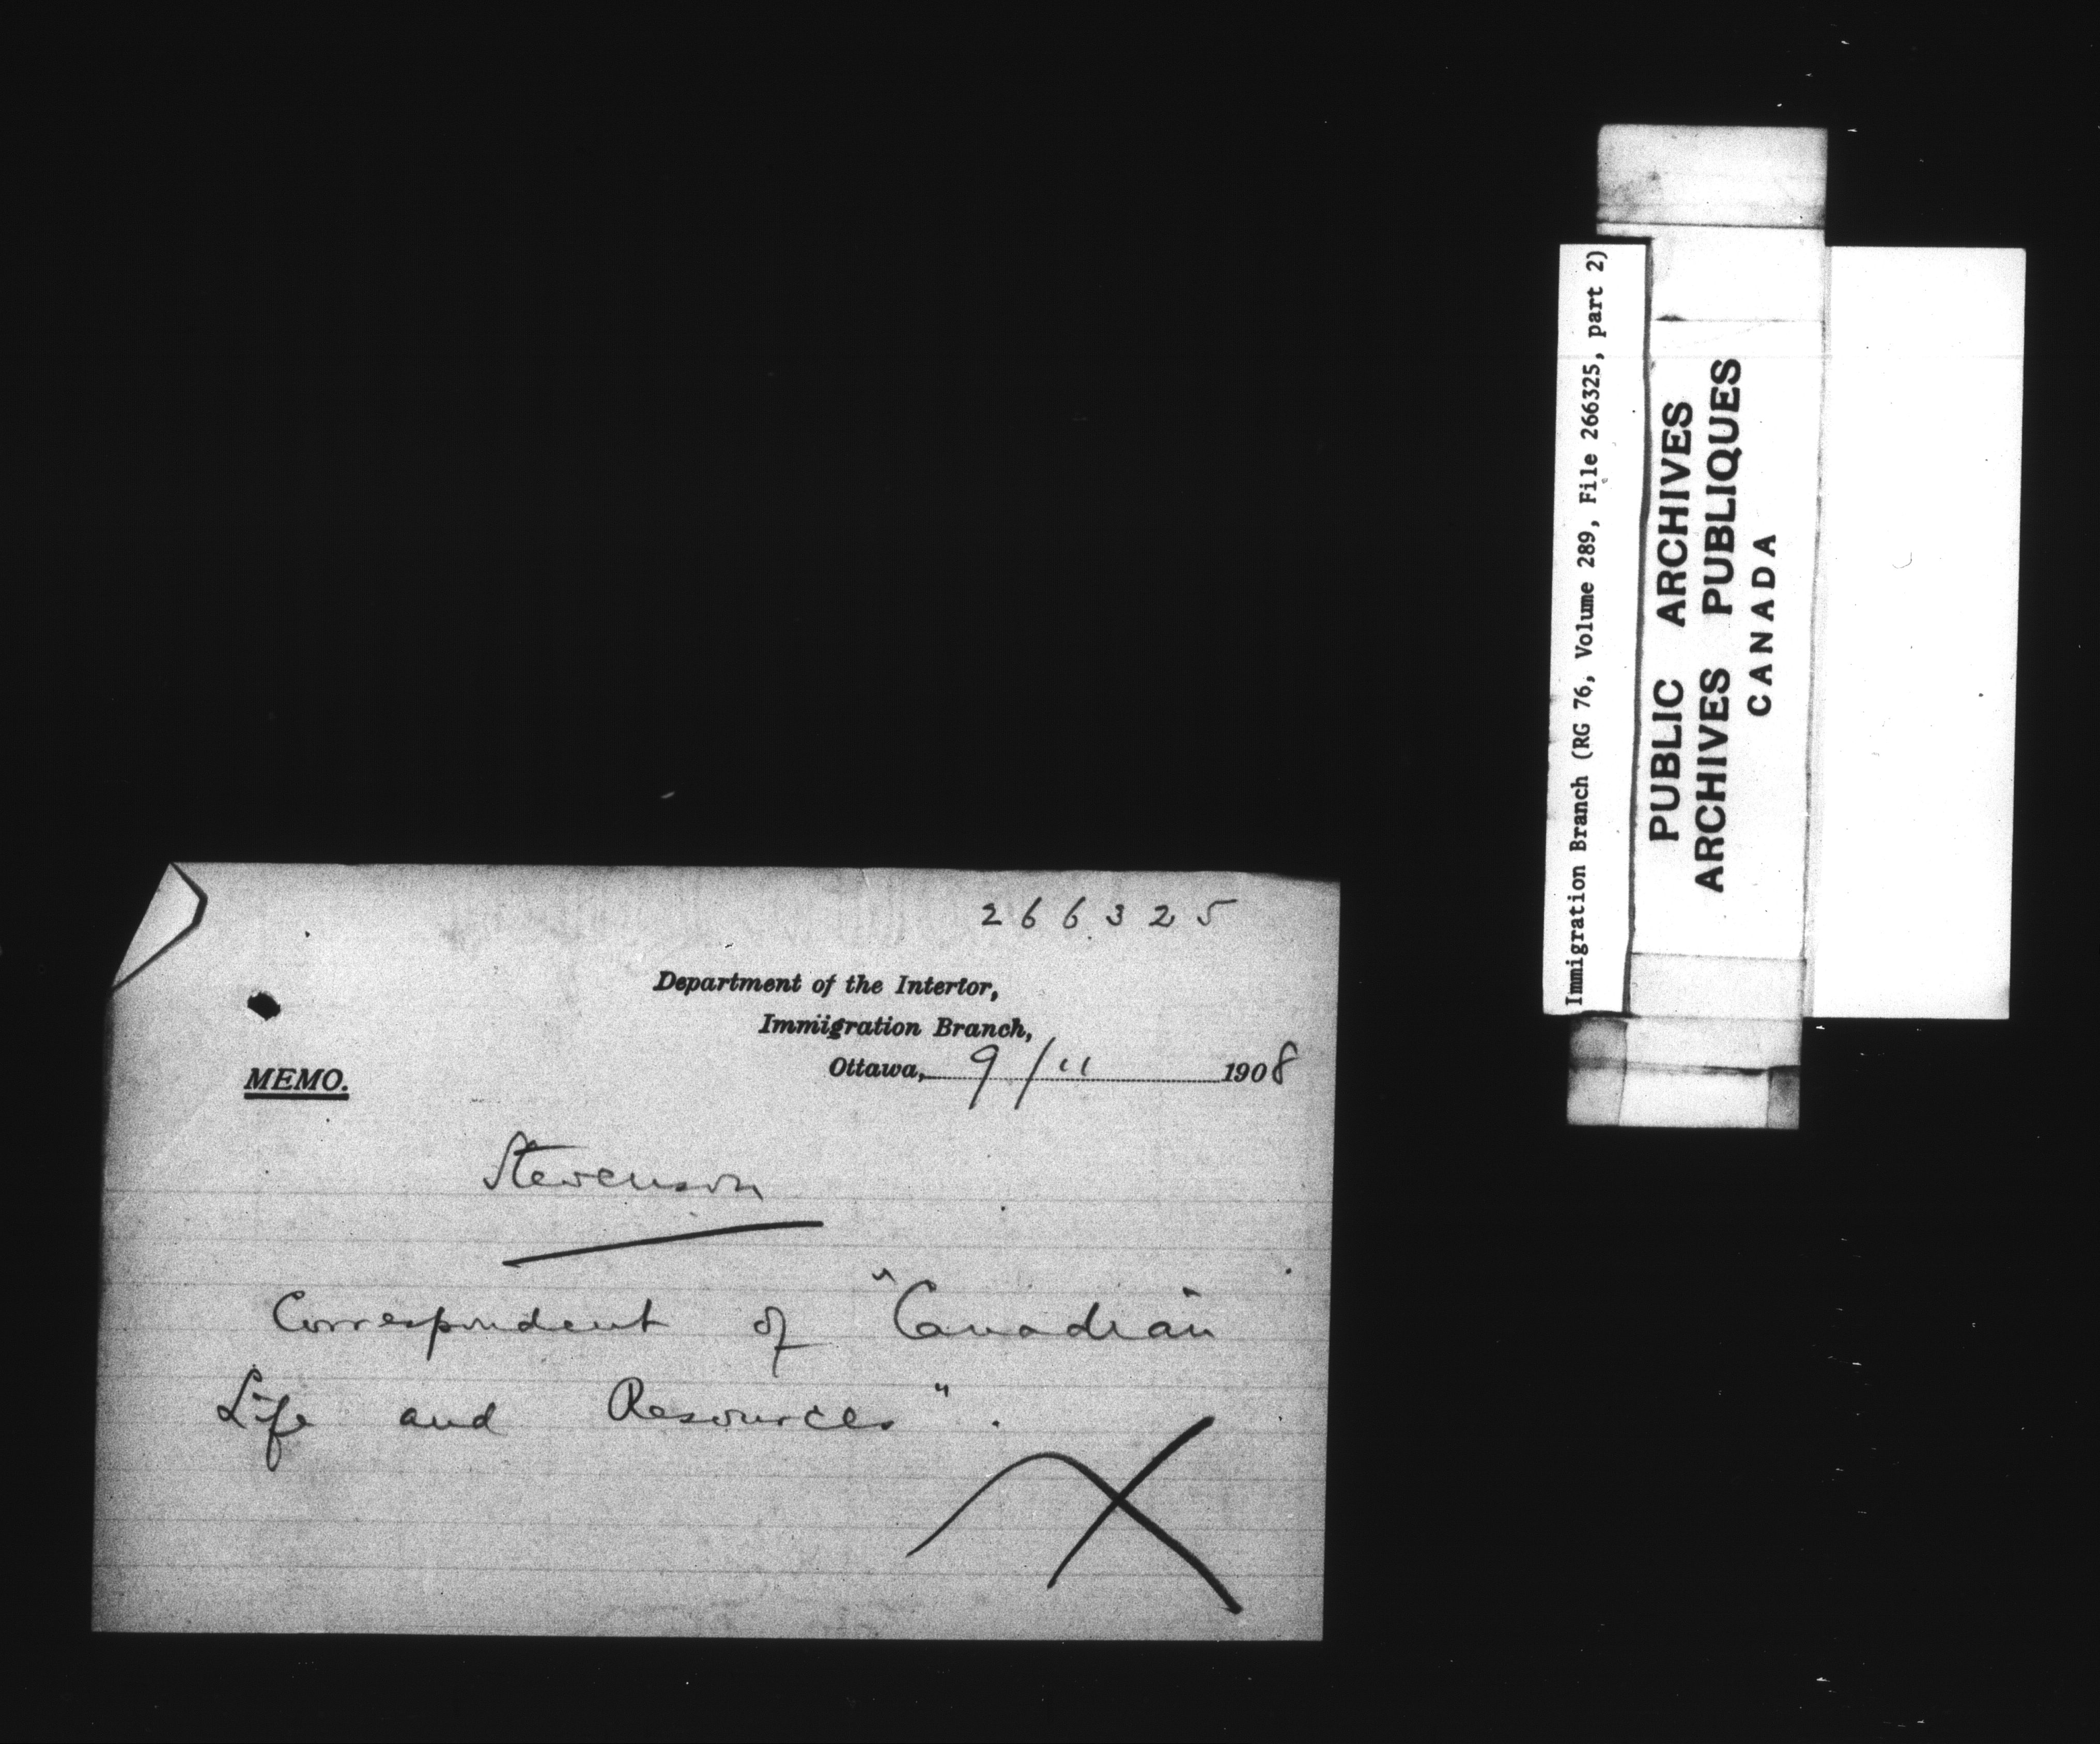 266325
Department of the Interior,
Immigration Branch,
Ottawa, 9/11 1908
MEMO.
Stevenson
Correspondent of "Canadian
Life and Resources".
Immigration Branch (RG 76, Volume 289, File 266325, part 2)
PUBLIC ARCHIVES
ARCHIVES PUBLIQUES
CANADA